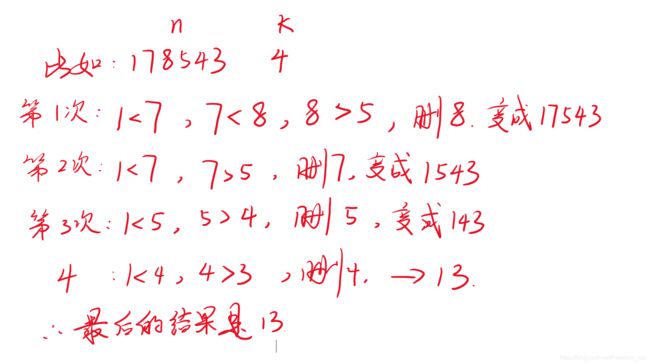 n k
比如:178543 4
第1次:1<7,7<8,8>5,删8.变成17543
第2次:1<7,7>5,删7,变成1543
第3次:1<5,5>4,删5,变成143
4 :1<4,4>3,删4.→13.
∴最后的结果是13